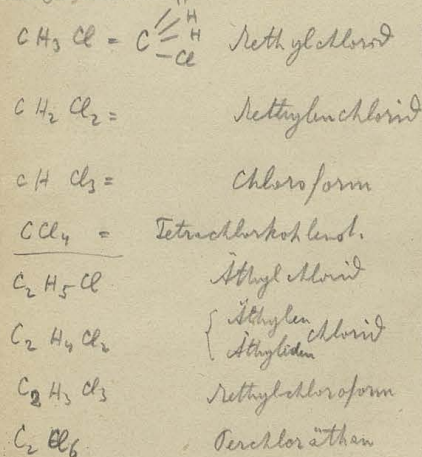 CH3 Cl = C H H H Cl Methylchlorid
CH2 Cl2 = Methylenchlorid
CH Cl3 = Chloroform
CCl4 = Tetrachlorkohlenst.
C2 H5 Cl Äthylchlorid
C2 H4 Cl2 { Äthylen Äthyliden chlorid
C2 H3 Cl3 Methylchloroform
C2 Cl6 Perchloräthan